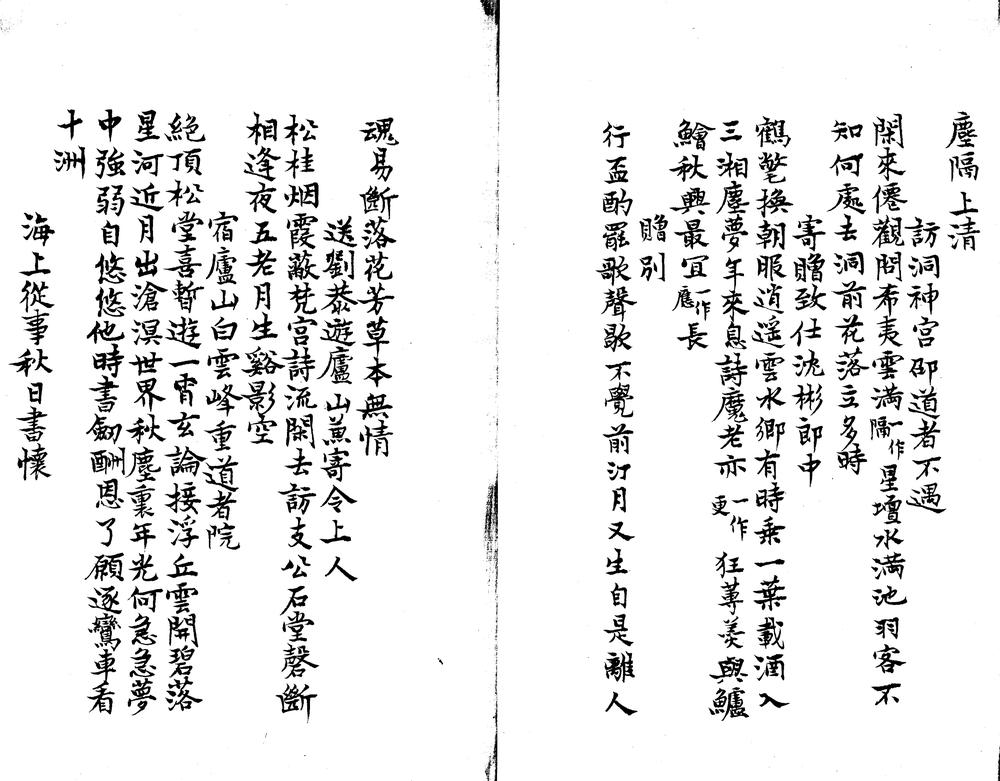 塵隔上清
訪洞神宫邵道者不遇
閑來僊觀問希夷雲滿一作隔星壇水滿池羽客不
知何處去洞前花落立多時
寄贈致仕沈彬郎中
鶴氅換朝服逍遥雲水鄉有時乗一葉載酒入
三湘塵夢年來息詩魔老亦一作更狂蓴羮與鱸
鱠秋興最冝一作應長
贈别
行盃酌罷歌聲歇不覺前汀月又生自是離人
魂易斷落花芳草本無情
送劉恭遊廬山兼寄令上人
松桂烟霞蔽梵宫詩流閑去訪支公石堂磬斷
相逢夜五老月生谿影空
宿廬山白雲峰重道者院
絶頂松堂喜暫遊一宵玄論接浮丘雲開碧落
星河近月出滄溟世界秋塵裏年光何急急夢
中強弱自悠悠他時書劒酬恩了願逐鸞車看
十洲
海上從事秋日書懷